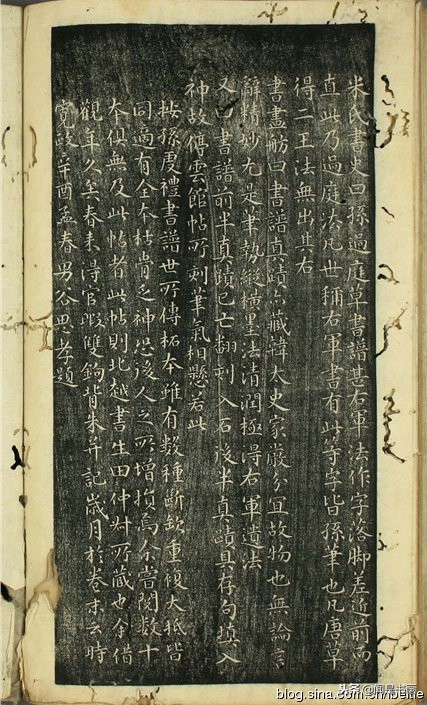 米氏書史曰孫過庭草書譜甚右軍法作字落脚差近前而
直此乃過庭法凡世稱右軍書有此等字皆孫筆也凡唐草
得二王法無出其右
書畫舫曰書譜真蹟亦藏韓太史家嚴分宜故物也無論言
辭精妙尤是筆勢縱橫墨法清潤極得右軍遺法
又曰書譜前半真蹟已亡翻刻入石後半真蹟具存勾填入
神故停雲館帖所刻筆氣相懸若此
按孫虔禮書譜世所傳柘本雖有數種斷缺重複大抵皆
同適有全本枯骨乏神恐後人之所增損焉余嘗閱數十
本俱無及此帖者此帖則北越書生田仲對所藏也余借
觀年久矣春来得官暇雙鉤背朱并記歲月於卷末云時
寛政辛酉孟春男谷思孝題
头条
blog.sina.com.cn/ibelue